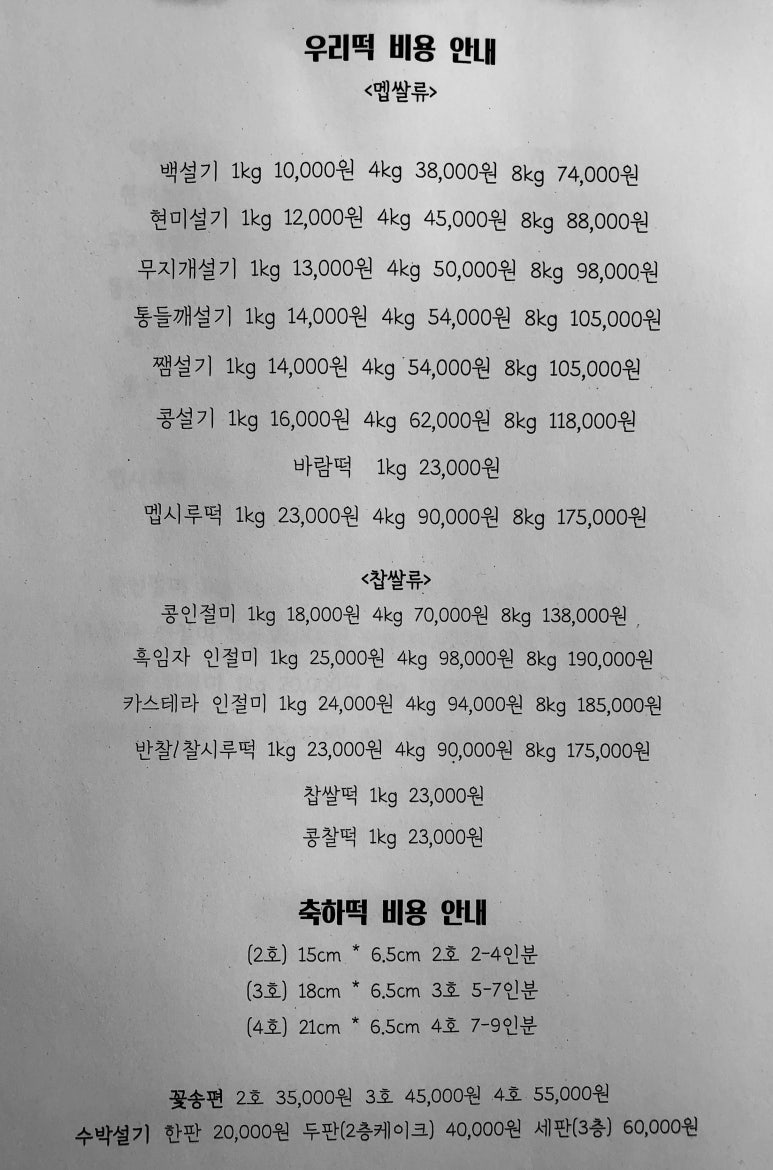 우리떡 비용 안내
<멥쌀류>
백설기 1kg 10,000원 4kg 38,000원 8kg 74,000원
현미설기 1kg 12,000원 4kg 45,000원 8kg 88,000원
무지개설기 1kg 13,000원 4kg 50,000원 8kg 98,000원
통들깨설기 1kg 14,000원 4kg 54,000원 8kg 105,000원
쨈설기 1kg 14,000원 4kg 54,000원 8kg 105,000원
콩설기 1kg 16,000원 4kg 62,000원 8kg 118,000원
바람떡 1kg 23,000원
멥시루떡 1kg 23,000원 4kg 90,000원 8kg 175,000원
<찹쌀류>
콩인절미 1kg 18,000원 4kg 70,000원 8kg 138,000원
흑임자 인절미 1kg 25,000원 4kg 98,000원 8kg 190,000원
카스테라 인절미 1kg 24,000원 4kg 94,000원 8kg 185,000원
반찰/찰시루떡 1kg 23,000원 4kg 90,000원 8kg 175,000원
찹쌀떡 1kg 23,000원
콩찰떡 1kg 23,000원
축하떡 비용 안내
(2호) 15cm * 6.5cm 2호 2-4인분
(3호) 18cm * 6.5cm 3호 5-7인분
(4호) 21cm * 6.5cm 4호 7-9인분
꽃송편 2호 35,000원 3호 45,000원 4호 55,000원
수박설기 한판 20,000원 두판(2층케이크) 40,000원 세판(3층) 60,000원